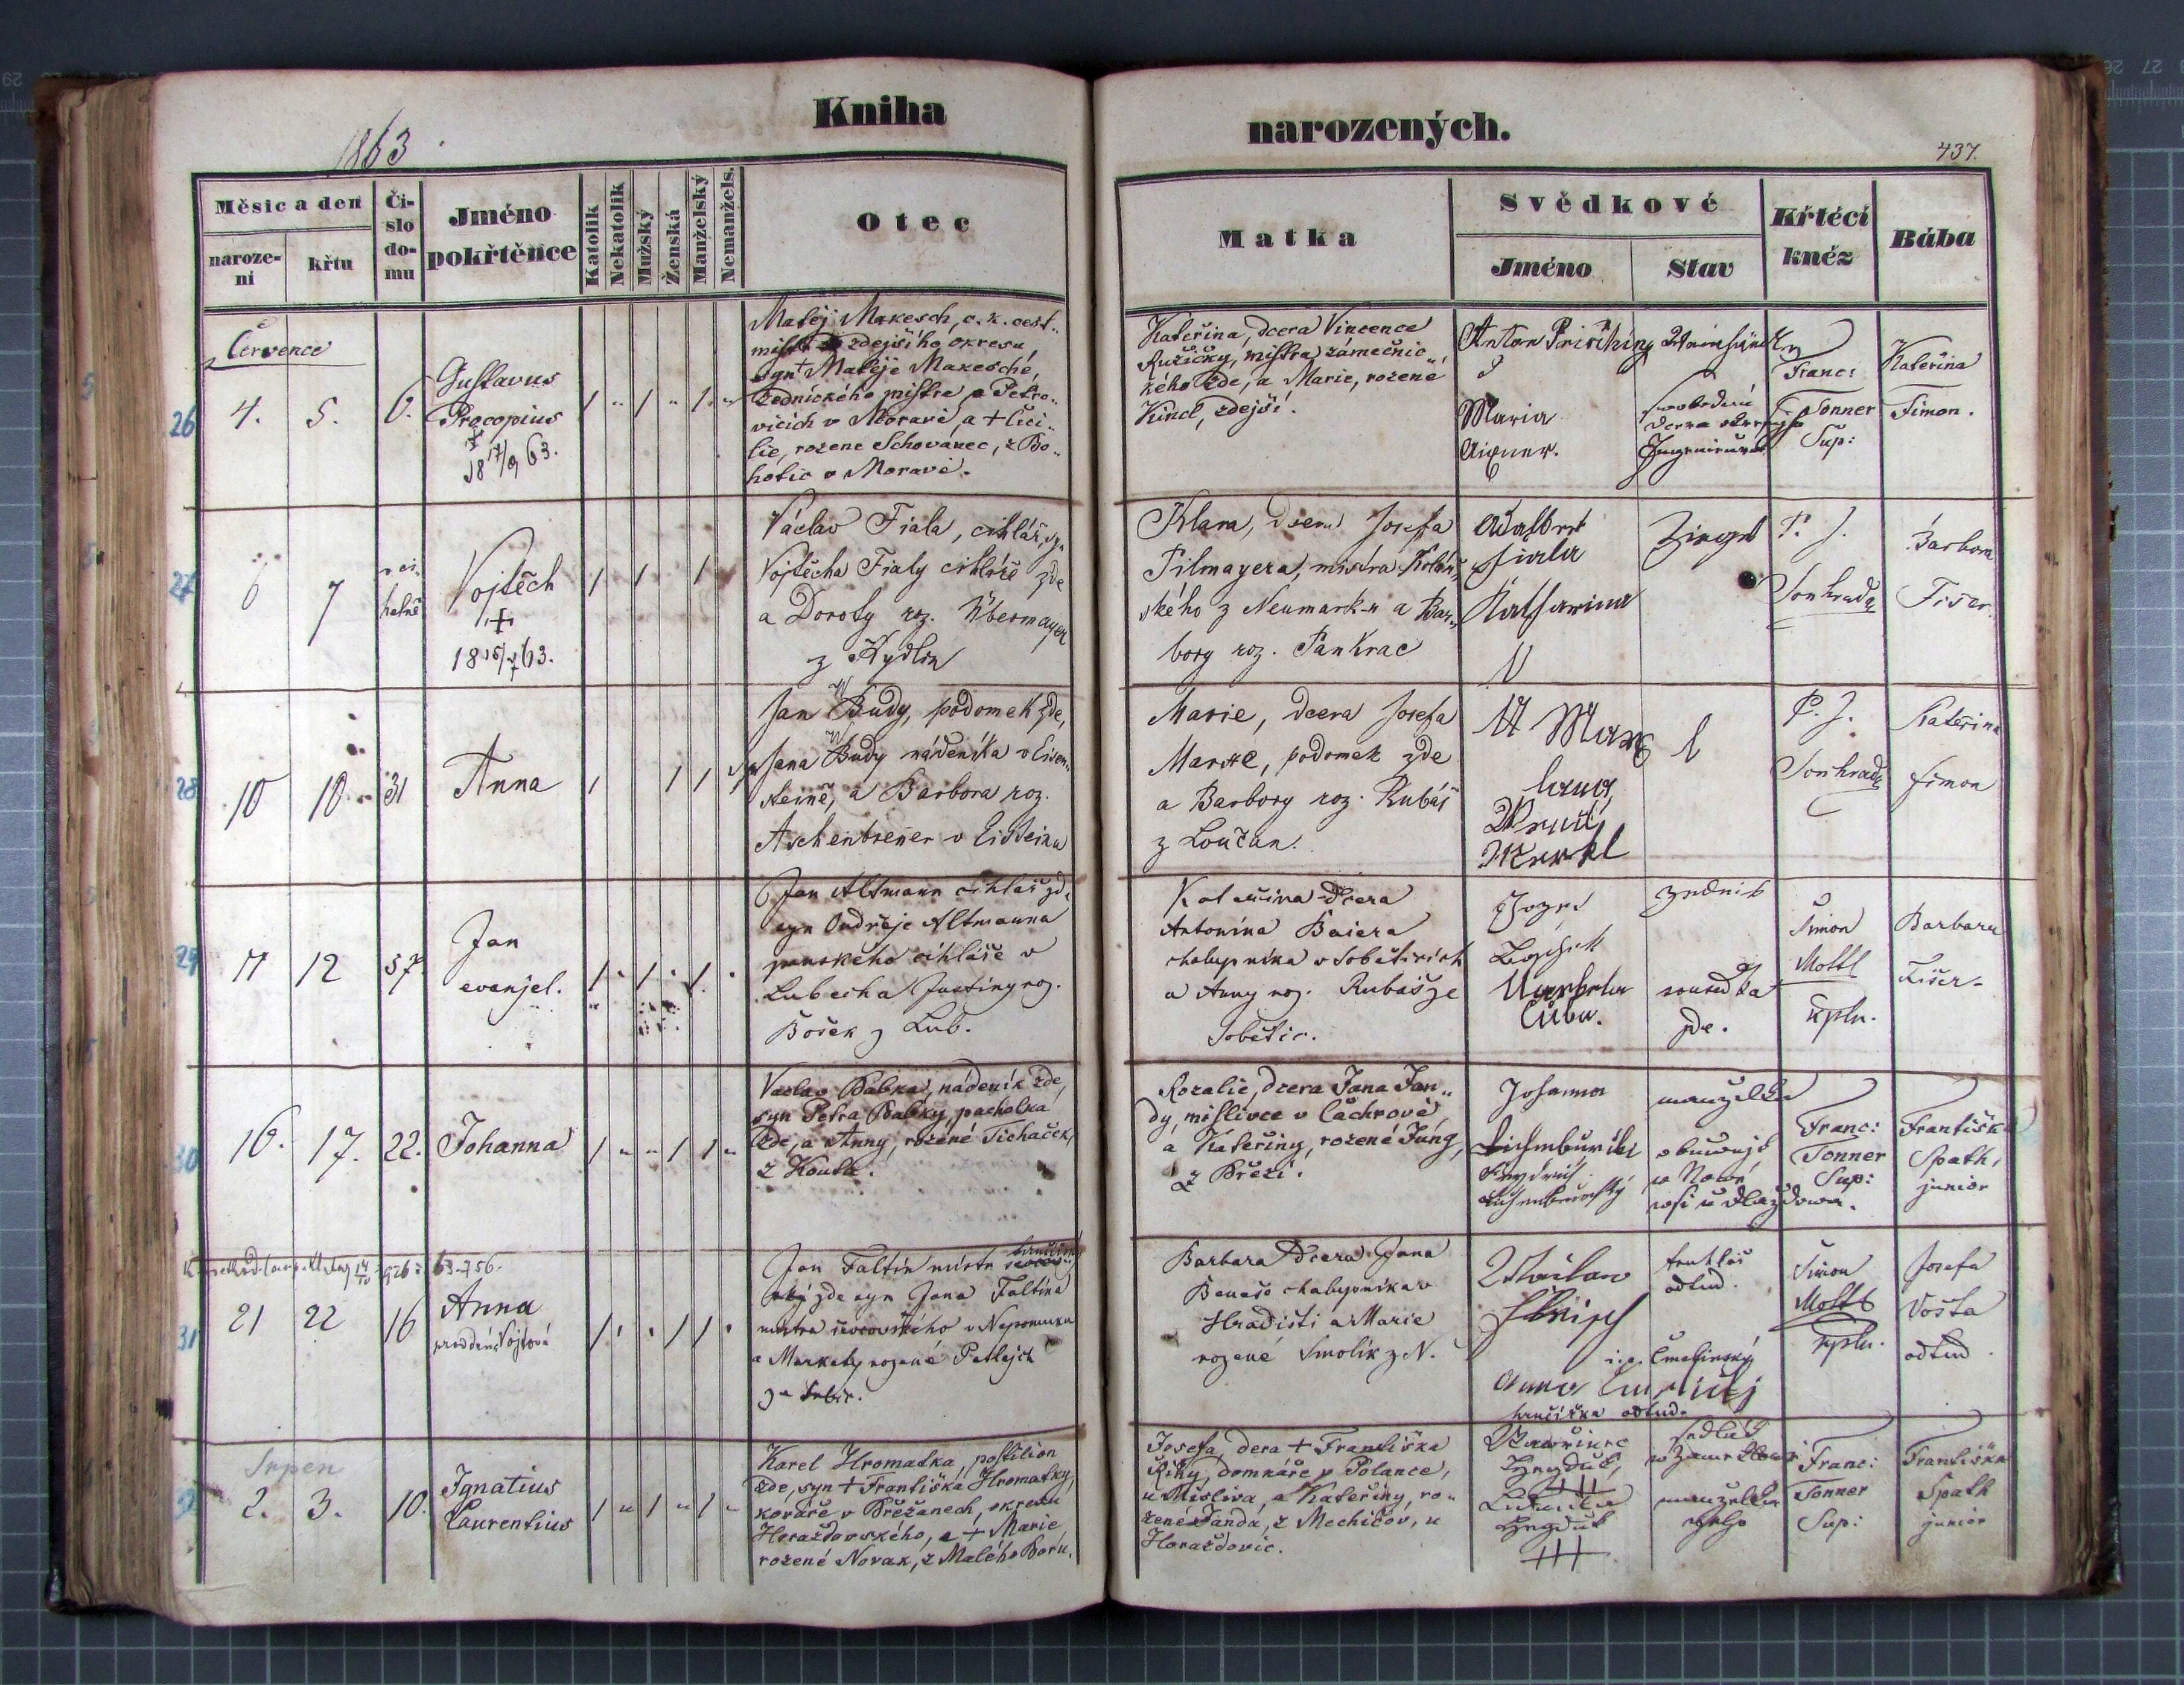 Kniha
narozených.
1863
437.
Měsíc a den
naroze-
ní
křtu
Čí-
slo
do-
mu
Jméno
pokřtěnce
Katolík
Nekatolík
Mužský
Ženská
Manželský
Nemanžels.
Otec
Matka
Svědkové
Jméno
Stav
Křtécí
kněz
Bába
Července
26
4.
5.
6.
Gustavus
Procopius
†
18 17/9 63.
Matěj Makesch, c. k. cest-
mistr zdejšího okresu,
syn Matěje Makesche,
zednického mistra v Petro-
vicích v Moravě, a † Ceci-
lie, rozené Schovanec, z Bo-
hotic v Moravě.
Kateřina, dcera Vincence
Ružičky, mistra zámečnic-
kého zde, a Marie, rozené
Kincl, zdejší.
Anton Prisching
Maria
Aigner.
svobodná
dcera
Franc:
Tonner
Sup:
Kateřina
Šimon.
27
6
7
v ci-
helně
Vojtěch
†
18 15/7 63.
Václav Fiala, cihlář, syn
Vojtěcha Fialy cihláře zde
a Doroty roz. Übermayer
z Kydlin
Klara, dcera Josefa
Pilmayera, mistra kolář-
ského z Neumark-u a Bar-
bory roz. Pankrac
Adalbert
Fiala
Katharina
P. J.
Souhrada
Barbora
Fišer.
28
10
10
31
Anna
Jan Wudy, podomek zde,
syn Jana Wudy nádeníka v Eisen-
steině, a Barbora roz.
Aschenbrener v Eisteinu
Marie, dcera Josefa
podomek zde
a Barbory roz. Rubáš
z Loučan.
P. J.
Souhrada
Kateřina
Šimon
29
11
12
57
Jan
evanjel.
Jan Altmann cihlář zde
syn Ondřeje Altmanna
panského cihláře v
Lubech a Justiny roz.
Bošek z Lub.
Kateřina dcera
Antonína Baiera
chalupníka v Soběticích
a Anny roz. Rubáš ze
Sobětic.
Josef
zedník
sousedka
zde.
Šimon
Mottl
kpln.
Barbara
Fišer.
30
16.
17.
22.
Johanna
Vaclav Babka, nádeník zde,
syn Petra Babky, pacholka
zde, a Anny, rozené Tichaček,
z Kouta.
Rozalie, dcera Jana Jan-
dy, mislivce v Čachrově,
a Kateřiny, rozené Jung,
z Březí.
Johanna
manželka
Franc:
Tonner
Sup:
Františka
Spath,
junior
31
21
22
16
Anna
provdaná Vojtová
Jan Faltín mistr hrnčířský
zde syn Jana Faltína
mistra ševcovského v Nepomuku
a Markety rozené Petlejch
Barbara dcera Jana
Beneše chalupníka v
Hradišti a Marie
rozené Smolík z N.
truhlář
odtud.
i. e. Čmelinský
Anna
hrnčířka odtud.
Šimon
Mottl
kpln.
Josefa
Vošta
odtud.
Srpen
32
2.
3.
10.
Ignatius
Laurentius
Karel Hromatka, postilion
zde, syn † Františka Hromatky,
kováře v Břežanech, okresu
Horažďovského, a † Marie,
rozené Novak, z Malého Boru.
Josefa, dcera † Františka
Říhy, domkáře v Polance,
u Misliva, a Kateřiny, ro-
zené Janda, z Mechičov, u
Horažďovic.
Vavřinec
+++
+++
sedlák
manželka
Franc:
Tonner
Sup:
Františka
Spath
junior